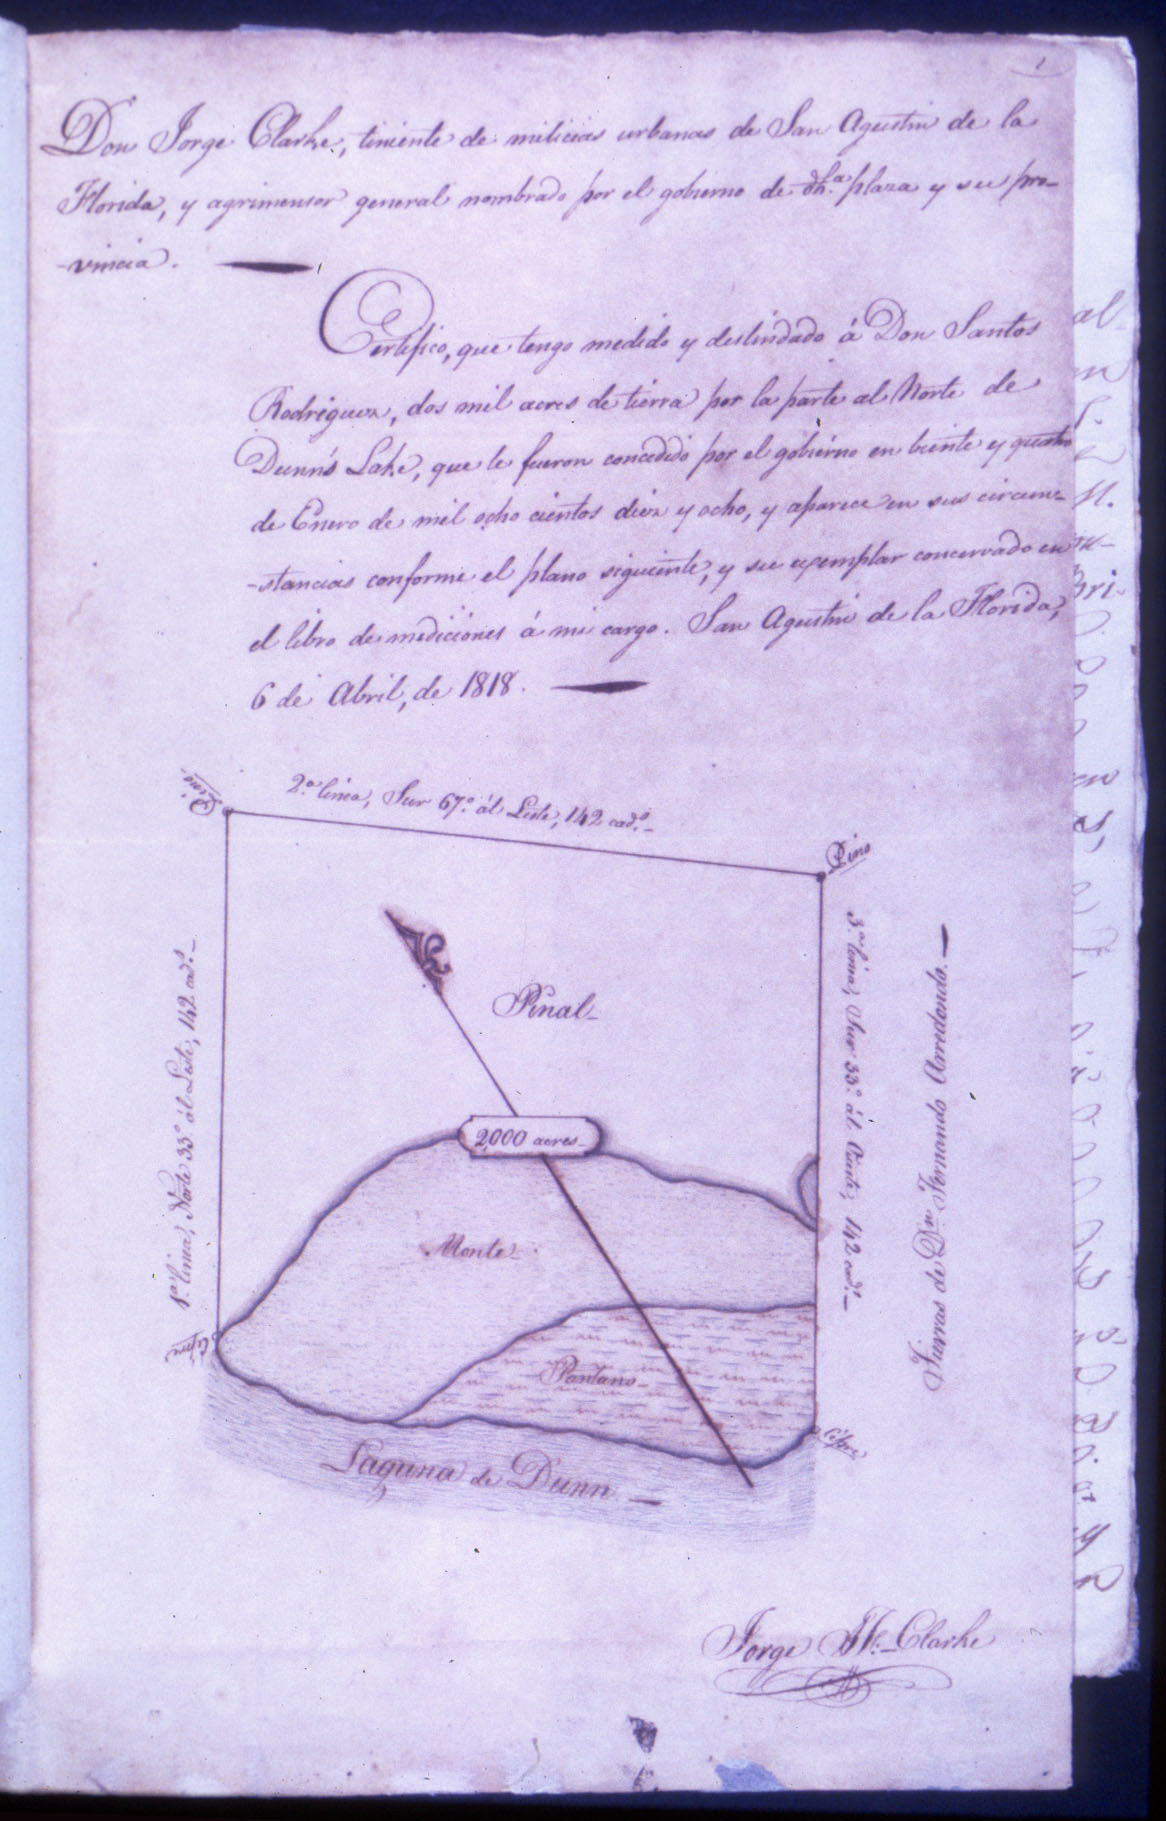 1
Don Jorge Clarke, tiniente de milicias urbanas de San Agustin de la
Florida, y agrimensor general nombrado por el gobierno de dh.ª plaza y su pro-
-vincia.
Certifico, que tengo medido y deslindado á Don Santos
Rodriguez, dos mil acres de tierra por la parte al Norte de
Dunn's Lake, que le fueron concedido por el gobiérno en biente y quatro
de Enero de mil ocho cientos diez y ocho, y aparece en sus circum-
-stancias conforme el plano siguiente, y su exemplar concervado en
el libro de mediciones á mi cargo. San Agustin de la Florida,
6 de Abril, de 1818.
Pino
2.ª linea, Sur 67.º ál Leste, 142 cad.s
Pino
1.ª linea, Norte 33.º ál Leste, 142 cad.s
3.ª linea, Sur 33.º ál Oeste, 142 cad.s
Tierras de Dn. Fernando Arredondo.
Pinal
2000 acres
Monte
Pantano
Cipre
Cipre
Laguna de Dunn
Jorge J. F. Clarke